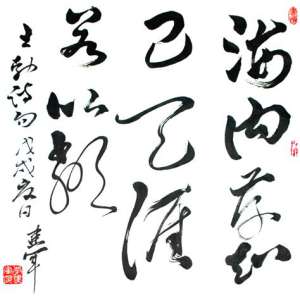 海内存知
己天涯
若比邻
王勃诗句戊戌夏日 建军